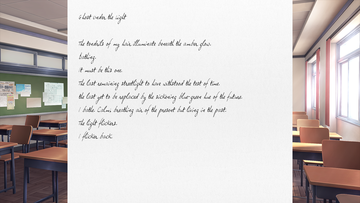 Ghost Under the Light
The tendrils of my hair illuminate beneath the amber glow.
Bathing.
It must be this one.
The last remaining streetlight to have withstood the test of time.
The last yet to be replaced by the sickening blue-green hue of the future.
I bathe. Calm; breathing air of the present but living in the past.
The light flickers.
I flicker back.